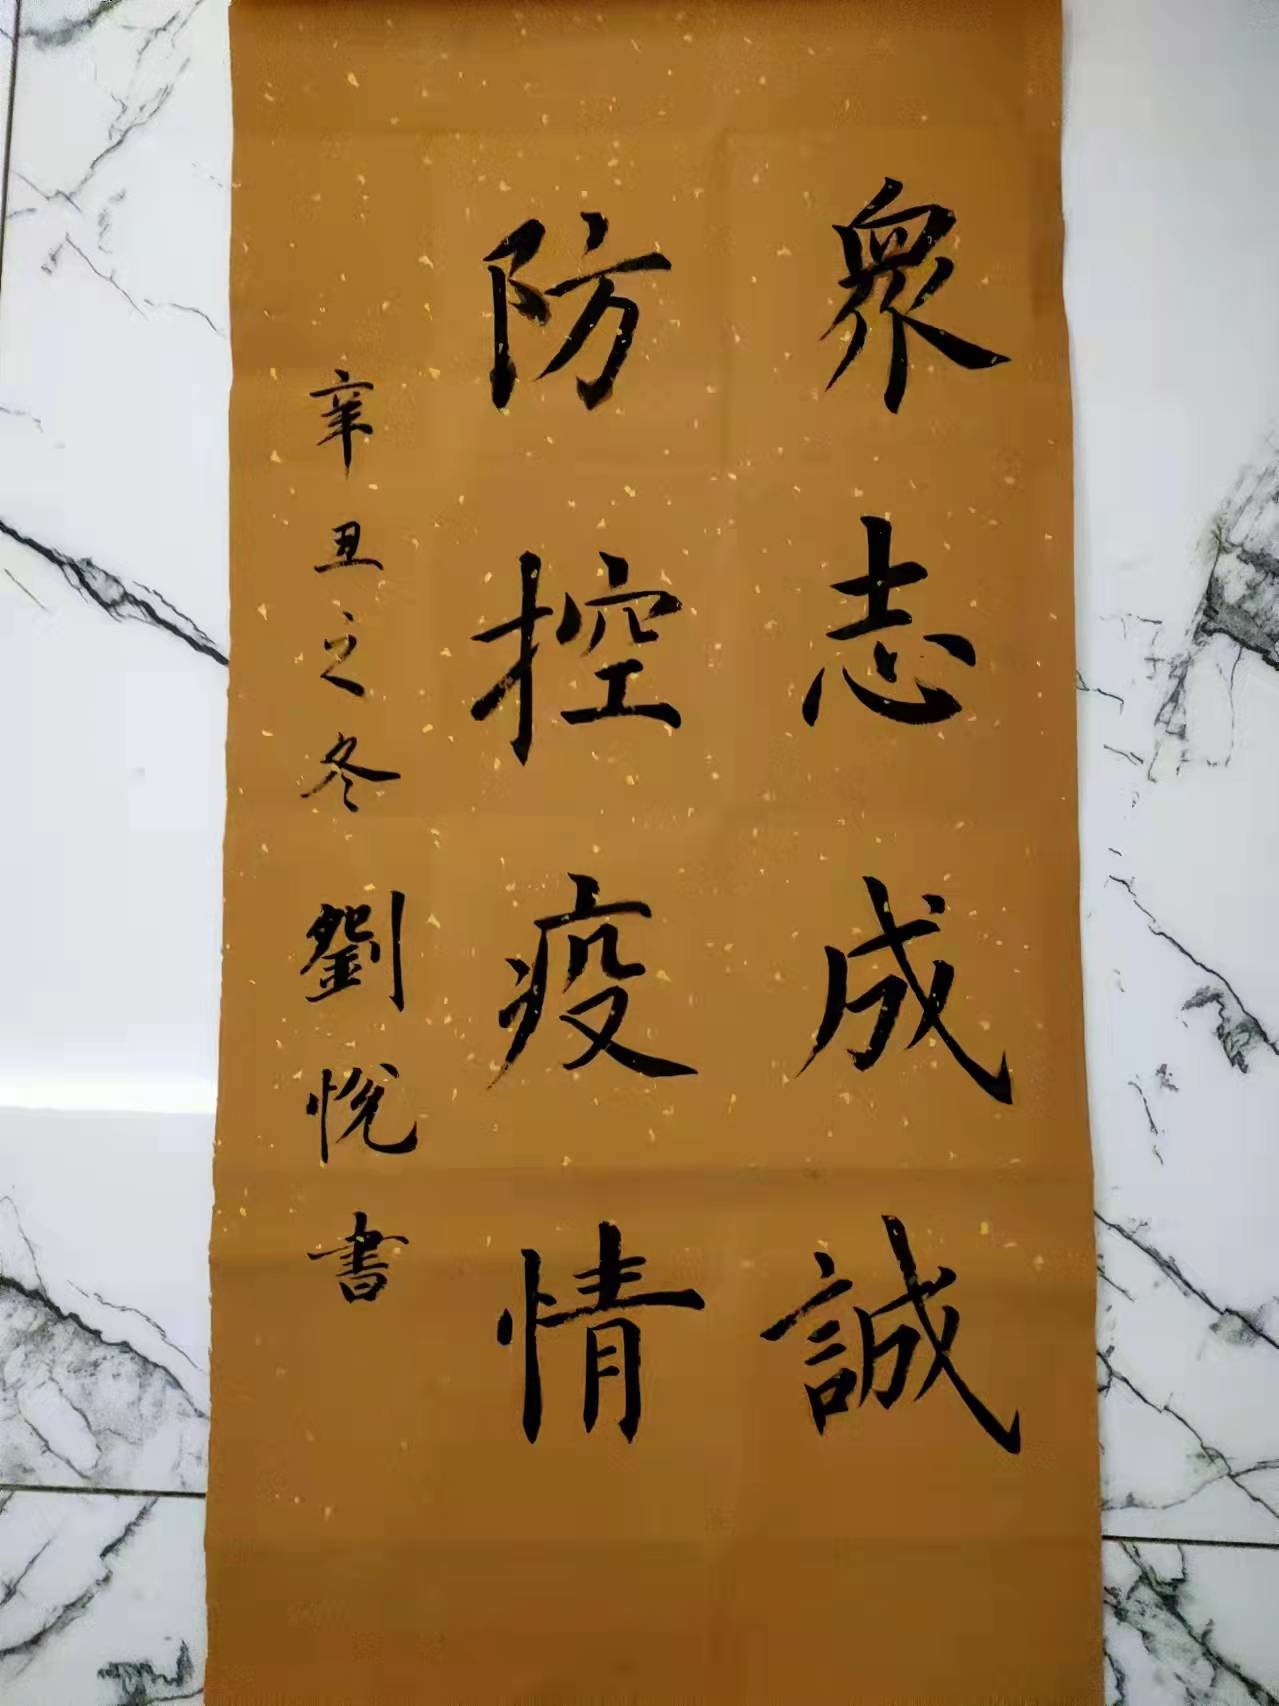 眾志成誠
防控疫情
辛丑之冬 劉悅書